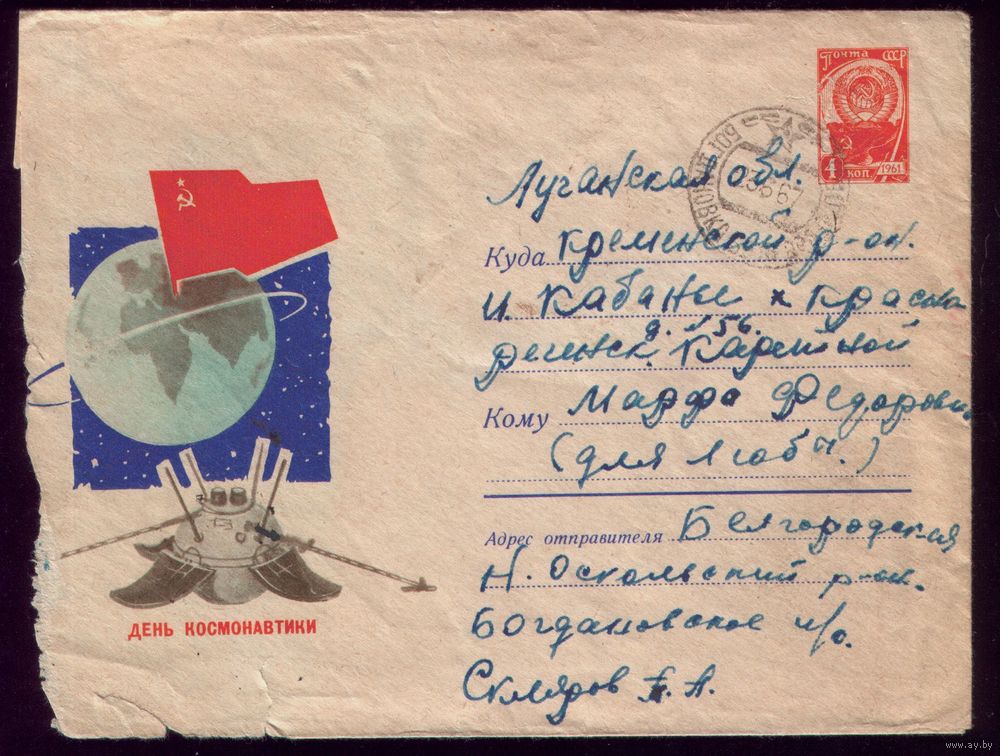 Почта СССР
4 коп 1961
23 6 67
Луганская обл.
Куда Кременской р-он.
и. Кабанье х Красно
д. 156.
реченск. Каретной
Кому Марфа Федоровна
(для Любы.)
Адрес отправителя Белгородская
Н. Оскольский р-он.
Богдановское п/о.
Скляров А. А.
ДЕНЬ КОСМОНАВТИКИ
www.ay.by